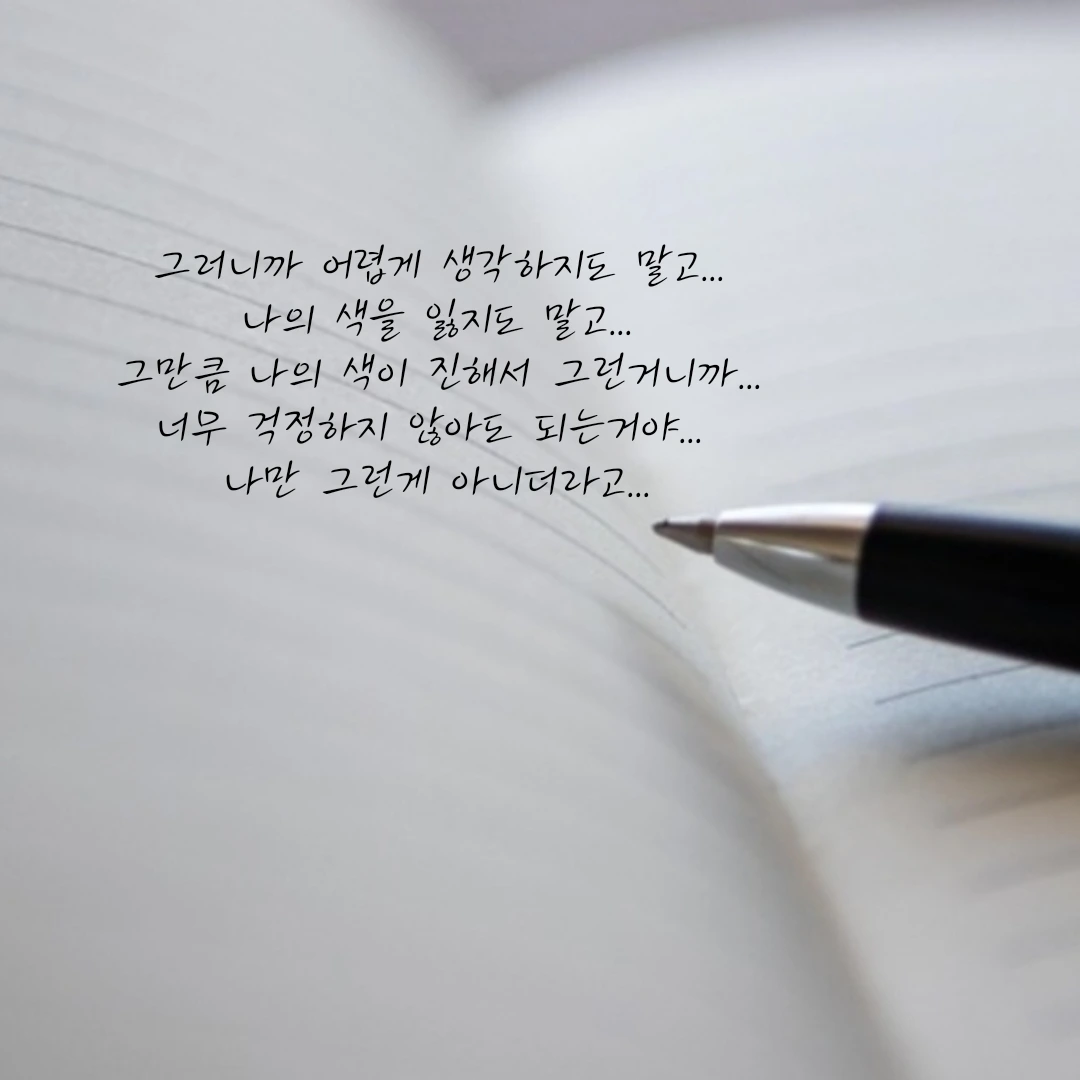 그러니까 어렵게 생각하지도 말고...
나의 색을 잃지도 말고...
그만큼 나의 색이 진해서 그런거니까...
너무 걱정하지 않아도 되는거야...
나만 그런게 아니더라고...